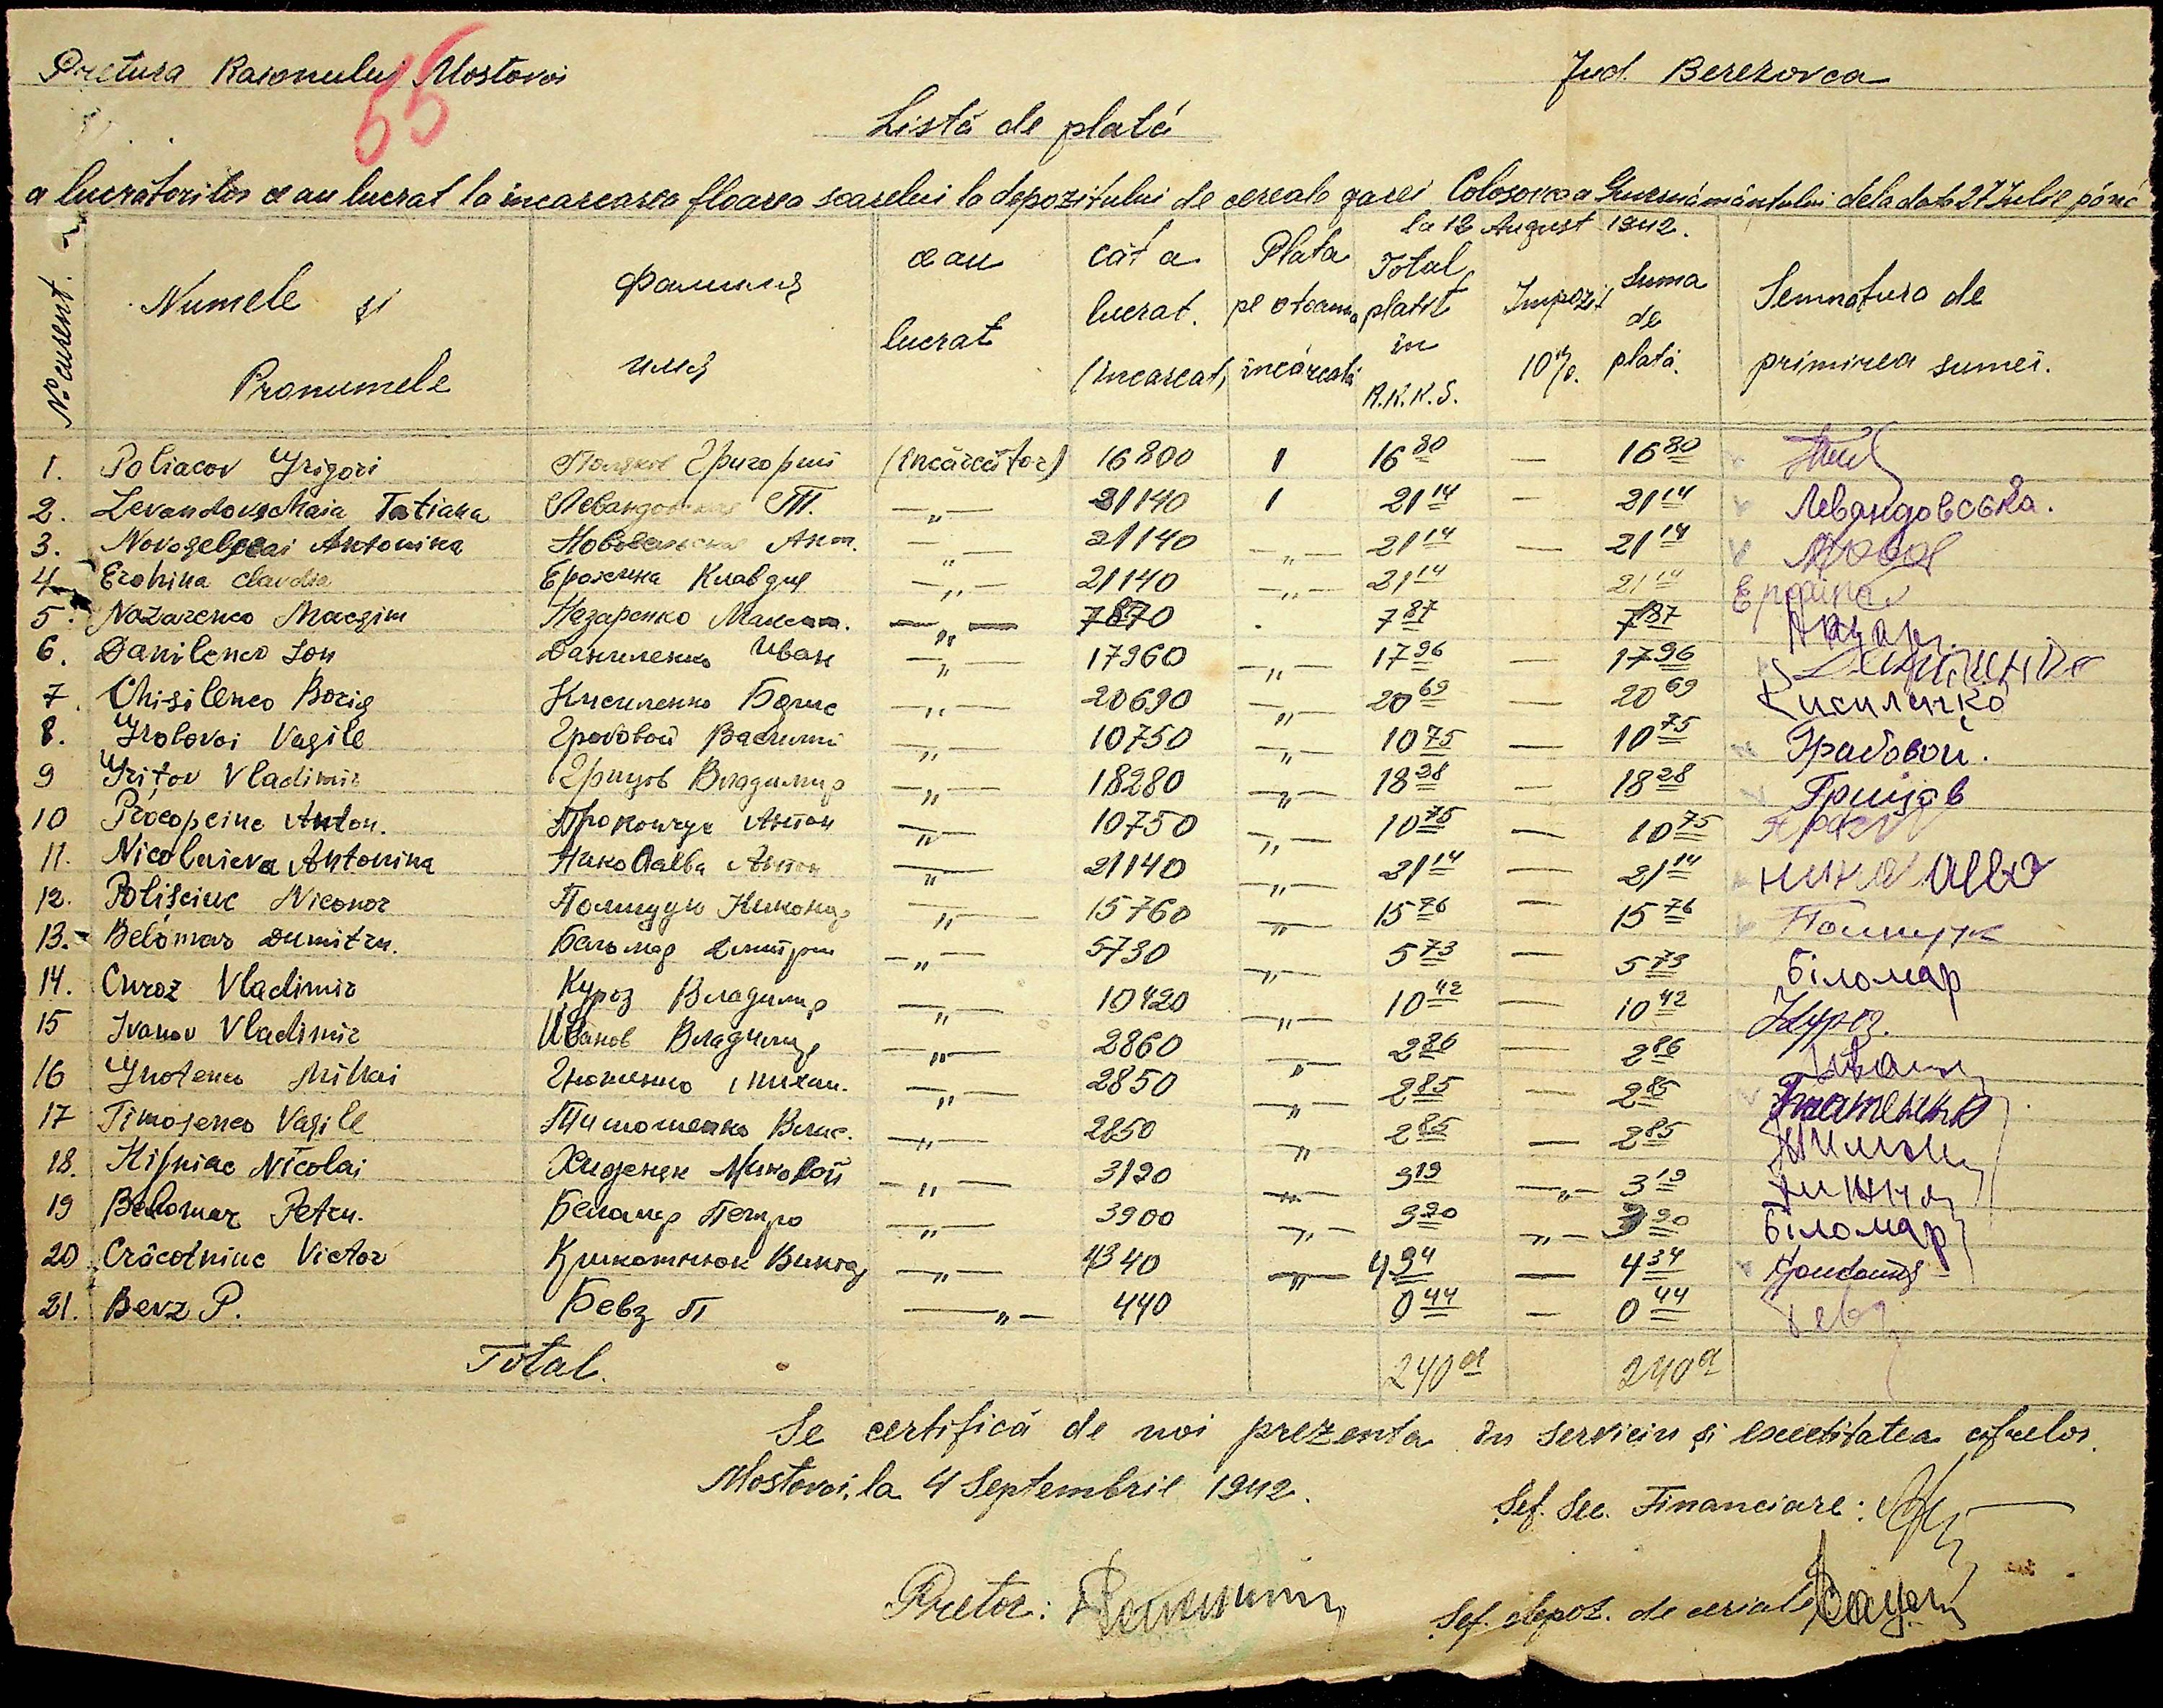 Pretura Raionului Mostovoi
Jud. Berezovca
55
Listă de plată
a lucrătorilor ce au lucrat la încarcarea floarea soarelui la depozitului de cereale garei Colosovca a Guvernământului dela data 27 Iulie până
la 12 August 1942.
No curent. Numele și Pronumele Фамилия имя ce au lucrat cât a lucrat. (încarcat) Plata pe o toana încărcată Total platit în R.K.K.S. Impozit 10%. Suma de plată. Semnatura de primirea sumei.
1. Poliacov Grigori Поляков Григорий (încărcător) 16800 1 16 80 — 16 80
2. Levandovschaia Tatiana Левандовская Т. —„— 21140 1 21 14 — 21 14 Левандовська.
3. Antonina Ант. —„— 21140 —„— 21 14 — 21 14
4. Erohina Clavdia Ерохина Клавдия —„— 21140 —„— 21 14 21 14
5. Nazarenco Macsim Назаренко Максим. —„— 7870 . 7 87 7 87 Назар.
6. Danilenco Ion Даниленко Иван —„— 17960 —„— 17 96 — 17 96
7. Chisilenco Boris Кисиленко Борис —„— 20690 —„— 20 69 — 20 69 Кисиленко
8. Grobovoi Vasile Гробовой Василий —„— 10750 —„— 10 75 — 10 75 Грабовой.
9 Grițov Vladimir Грицов Владимир —„— 18280 —„— 18 28 — 18 28 Грицов
10 Procopciuc Anton. Прокопчук Антон —„— 10750 —„— 10 75 — 10 75
11. Nicolaieva Antonina Антон —„— 21140 —„— 21 14 — 21 14
12. Polișciuc Niconor Полищук Никонор —„— 15760 —„— 15 76 — 15 76
13. Belomar Dumitru. Беломар Дмитрий —„— 5730 —„— 5 73 — 5 73 Біломар
14. Curoz Vladimir Куроз Владимир —„— 10420 —„— 10 42 — 10 42 Куроз.
15 Ivanov Vladimir Иванов Владимир —„— 2860 „ 2 86 — 2 86
16 Gnotenco Mihai Гнотенко Михаи. —„— 2850 —„— 2 85 — 2 85
17 Timoșenco Vasile Тимошенко Васи. —„— 2850 „ 2 85 — 2 85
18. Nicolai Николай —„— 3190 —„— 3 19 —„— 3 19
19 Belomar Petru. Беламар Петро —„— 3900 —„— 3 90 —„— 3 90 Біломар
20 Crâcotniuc Victor Виктор —„— 4340 —„— 4 34 — 4 34
21. Bevz P. Бевз П —„— 440 0 44 — 0 44 Бевз
Total. 240 01 240 01
Se certifică de noi prezenta în serviciu și exactitatea cifrelor.
Mostovoi, la 4 Septembrie 1942.
Șef. Sec. Financiare:
Pretor:
Șef. depoz. de ceriale